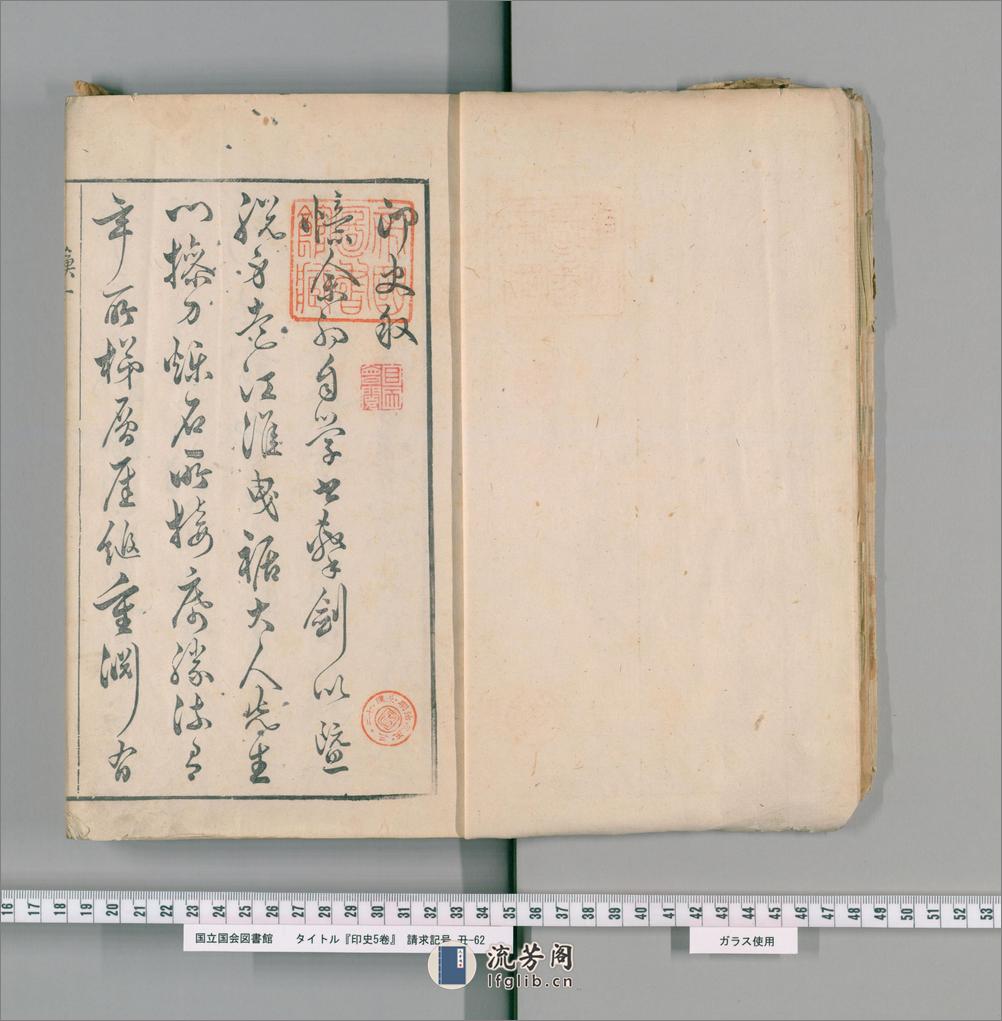 印史叙
憶余初自学書擊劍以暨
脱身走江淮曳裾大人先生
门操刀爍石所接席勝流有
年所梯層崖縋重淵有
帝國圖書館藏
16 17 18 19 20 21 22 23 24 25 26 27 28 29 30 31 32 33 34 35 36 37 38 39 40 41 42 43 44 45 46 47 48 49 50 51 52 53
国立国会図書館 タイトル『印史5卷』 請求記号 丑-62
ガラス使用
流芳阁
lfglib.cn